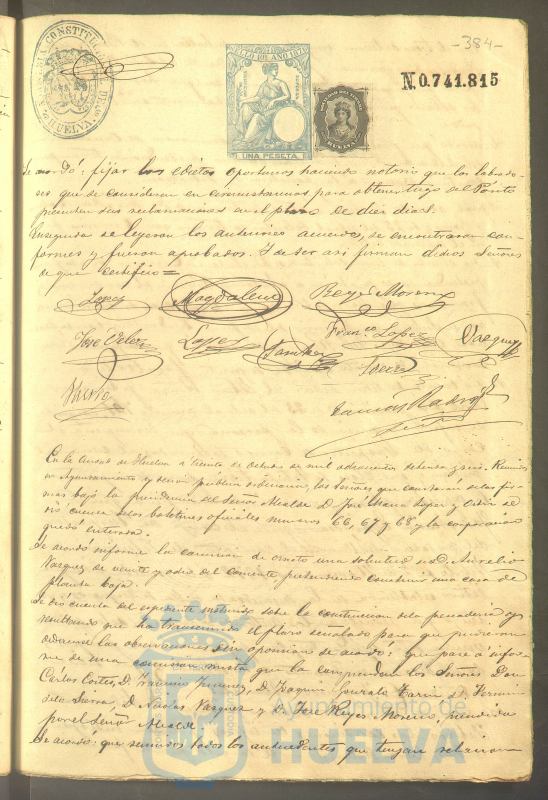 -384-
ALCALDIA CONSTITUCIONAL DE HUELVA
SELLO 10º AÑO 1876
UNA PESETA
HUELVA
N.0.741.815
se acordó: fijar los edictos oportunos haciendo notorio que los labrado-
res que se consideren en circunstancias para obtener trigo del Pósito
presenten sus reclamaciones en el plazo de diez dias.
Enseguida se leyeron los anteriores acuerdos, se encontraron con-
formes y fueron aprobados. Y de ser así firman dichos Señores
de que certifico=
Lopez Magdalena Reyes Moreno
José Velez Lopez Sanchez Franco. Lopez Vazquez
Ramón
En la Ciudad de Huelva á treinta de Octubre de mil ochocientos setenta y seis. Reunidos
en Ayuntamiento y sesion pública ordinaria, los Señores que constarán de las fir-
mas bajo la presidencia del Señor Alcalde D. José Maria Lopez y se
dió cuenta de los boletines oficiales numeros 66, 67 y 68 y la corporacion
quedó enterada.
Se acordó informe la comision de ornato una solicitud de D. Aurelio
Vazquez de veinte y ocho del corriente pretendiendo construir una casa de
planta baja.
Se dió cuenta del espediente instruido sobre la construccion de la pescaderia y
resultando que ha transcurrido el plazo señalado para que pudieran
las observaciones sin oposicion se acordó: que pase á infor-
me de una comision mista que la compondrán los Señores Don
Carlos Cortes, D. Francisco Jimenez, D. Joaquin Gonzalez D. Fermin
de la Sierra, D. Nicolas Vazquez y D. José Reyes Moreno, presidida
por el Señor Alcalde.
Se acordó: que reunidos todos los antecedentes que tengan relacion
Ayuntamiento de
HUELVA